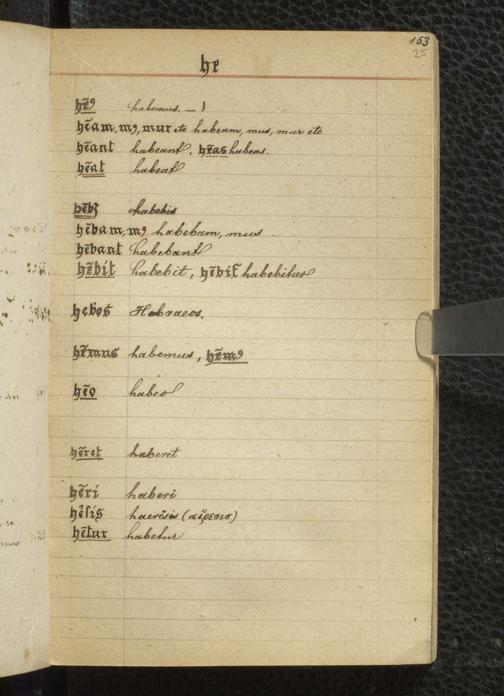 153
25
he
hēꝯ habemus. — )
hēam, mꝯ, mur etc habeam, mus, mur etc
hēant habeant, hēas habeas.
hēat habeat
hēbꝫ habebis
hēbam, mꝯ habebam, mus
hēbant habebant
hēbit habebit, hēbit᷑ habebitur
hebos Hebraeos.
hēmus habemus, hēmꝯ
hēo habeo
hēret haberet
hēri haberi
hesis haeresis (αἵρεσισ)
hētur habetur